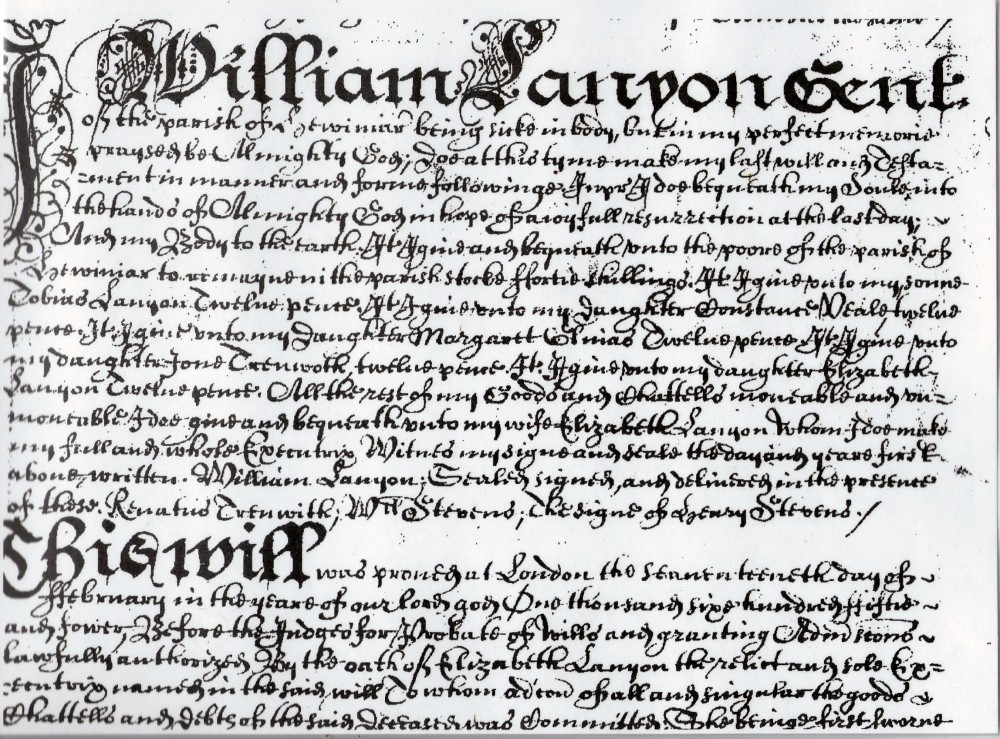 I William Lanyon Gent.
of the parish of Gewiniar being sicke in body, but in my perfect memorie
praysed be Almighty God, Doe at this tyme make my last will and Testa-
ment in manner and forme followinge. Inpr I doe bequeath my Soule into
the hands of Almighty God in hope of a ioyfull resurrection at the last day,
And my Body to the earth. It I giue and bequeath vnto the poore of the parish of
Gewiniar to remayne in the parish stocke ffortie shillings. It I giue vnto my sonne
Tobias Lanyon Twelue pence. It I giue vnto my Daughter Constance Veale twelue
pence. It. I giue vnto my Daughter Margaret Twelue pence. It I giue vnto
my daughter Jone Trenwoth, twelue pence. It. I giue vnto my daughter Elizabeth
Lanyon Twelue pence. All the rest of my Goods and Chattells moueable and vn-
moueable I doe giue and bequeath vnto my wife Elizabeth Lanyon whom I doe make
my full and whole Executrix Witnes my signe and seale the day and yeare first
aboue written. William Lanyon; Sealed signed, and deliuered in the presence
of these. Renatus Trenwith; Wll Stevens; The signe of Henry Stevens. /
This will was proued at London the seauenteeneth day of
ffebruary in the yeare of our lord god One thousand sixe hundred ffiftie
and fower, Before the Judges for Probate of wills and granting Admiscons
lawfully authorized By the oath of Elizabeth Lanyon the relict and sole Ex=
ecutrix named in the said will To whom adcon of all and singular the goods
Chattells and debts of the said deceased was Committed. She beinge first sworne